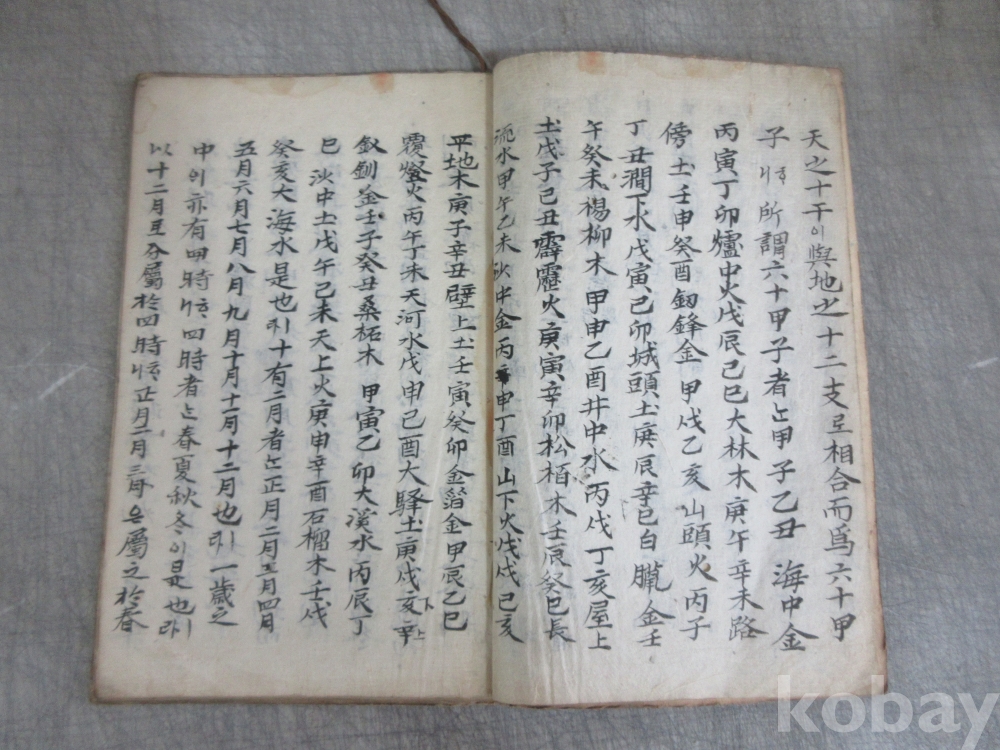 天之十干이與地之十二支로相合而爲六十甲
子 所謂六十甲子者는甲子乙丑 海中金
丙寅丁卯爐中火戊辰己巳大林木庚午辛未路
傍土壬申癸酉釰鋒金 甲戌乙亥山頭火丙子
丁丑澗下水戊寅己卯城頭土庚辰辛巳白臘金壬
午癸未楊柳木甲申乙酉井中水丙戌丁亥屋上
土戊子己丑霹靂火庚寅辛卯松栢木壬辰癸巳長
流水甲午乙未沙中金丙申丁酉山下火戊戌己亥
平地木庚子辛丑壁上土壬寅癸卯金箔金甲辰乙巳
覆燈火丙午丁未天河水戊申己酉大驛土庚戌亥辛
釵釧金壬子癸丑桑柘木 甲寅乙卯大溪水丙辰丁
巳 沙中土戊午己未天上火庚申辛酉石榴木壬戌
癸亥大海水是也 十有二月者는正月二月三月四月
五月六月七月八月九月十月十一月十二月也 一歲之
中이亦有四時 四時者는春夏秋冬이是也라
以十二月로分屬於四時 正月二月三月은屬之於春
kobay